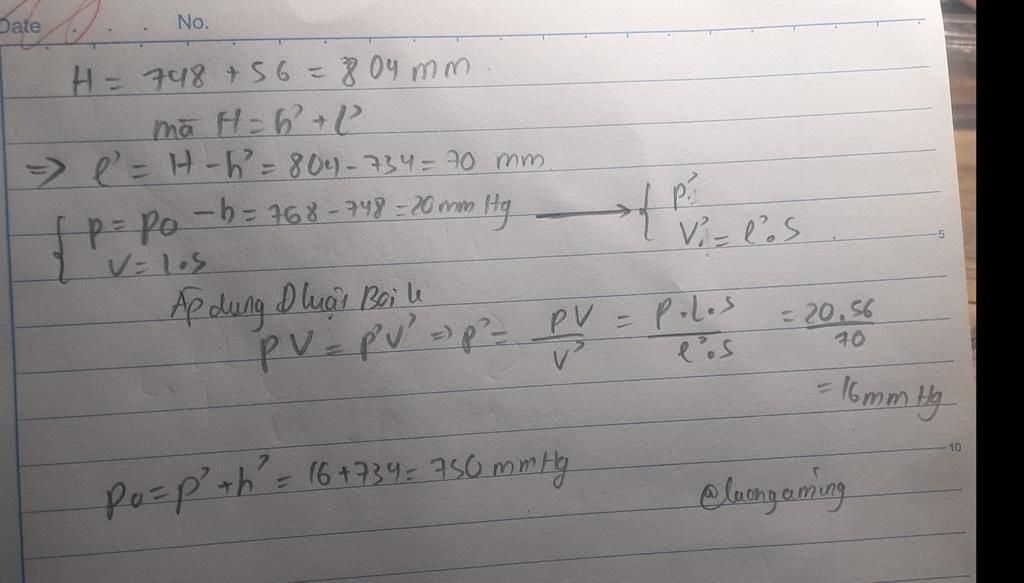 Date . . . No.
H = 748 + 56 = 804 mm.
mà H = h' + l'
=> l' = H - h' = 804 - 734 = 70 mm
{ p = po - h = 768 - 748 = 20 mm Hg → { p'
V = l.S V' = l'.S
5
Áp dụng Đluật Bôi lơ
pV = p'V' => p' = pV/V' = p.l.S/l'.S = 20.56/70
= 16 mm Hg
10
po = p' + h' = 16 + 734 = 750 mmHg
@luongaming